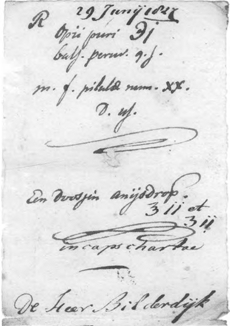 R 29 Junij 1827
Opii puri ℈j
bals. peruv. q. s.
m. f. pilulae num. XX.
D. us.
Een doosjin anijsdrop.
ʒ ii et
ʒ ii
in caps chartae
De Heer Bilderdijk